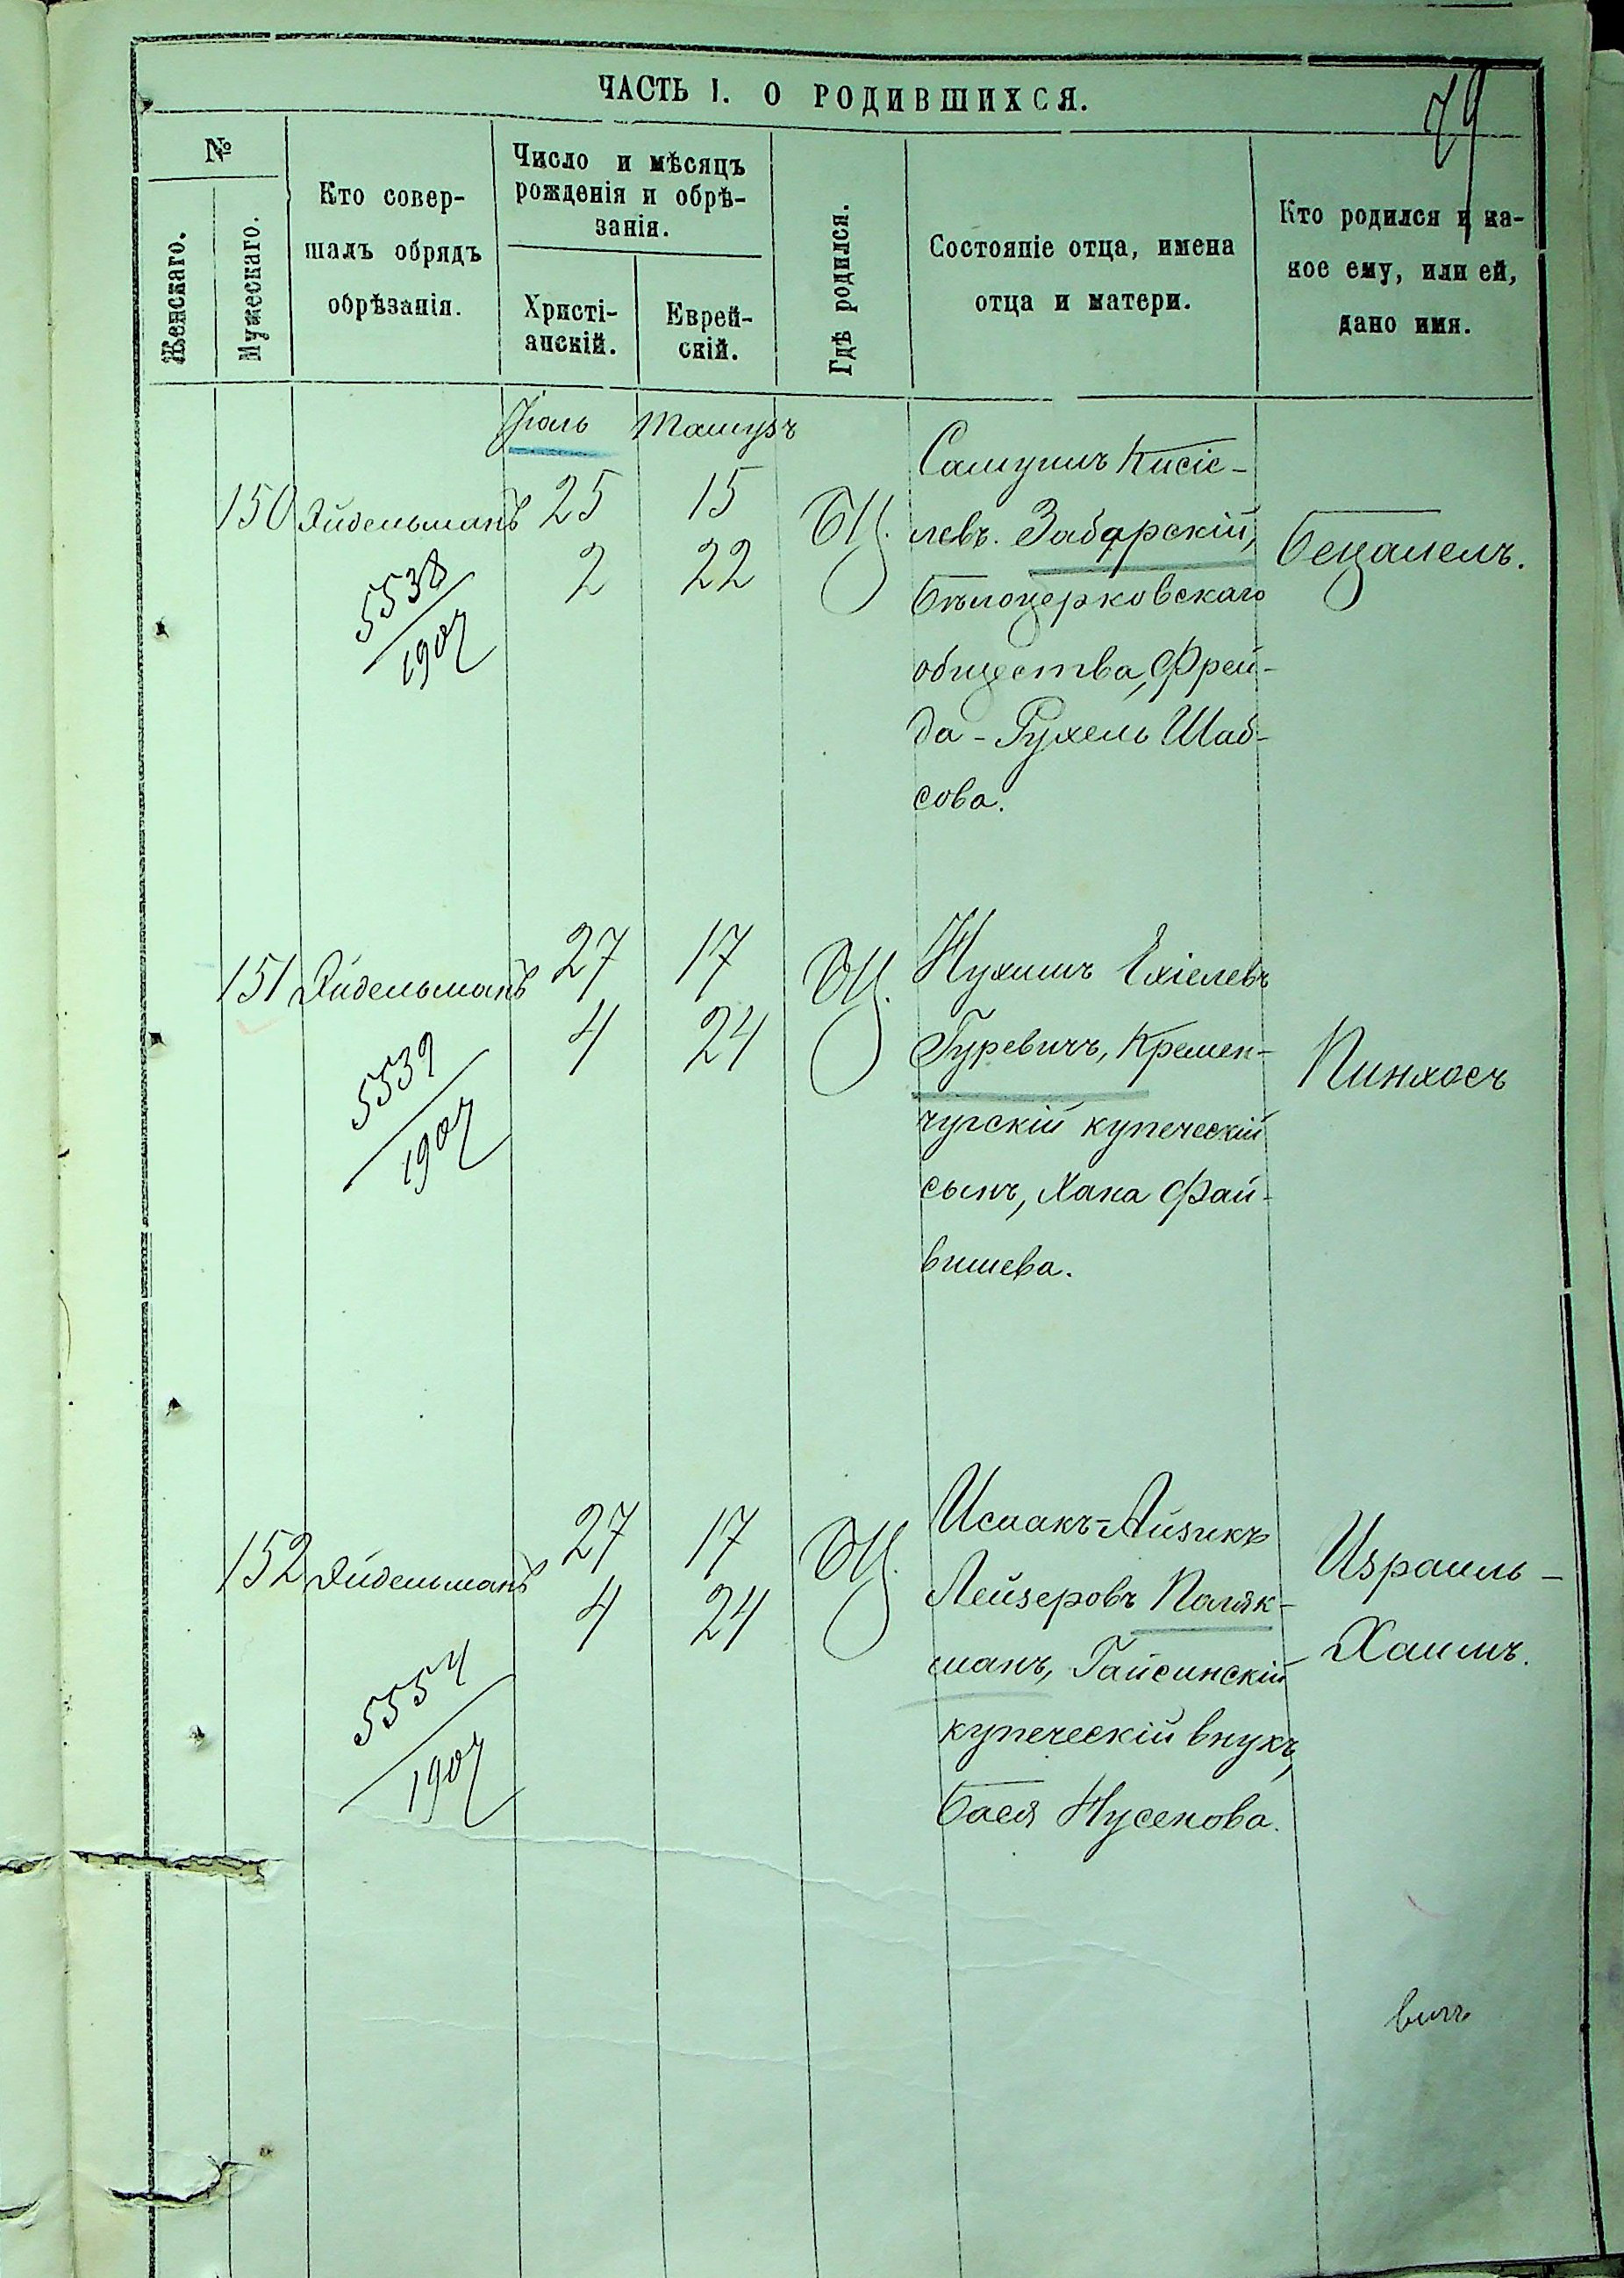 ЧАСТЬ I. О РОДИВШИХСЯ.
79
№
Женскаго.
Мужескаго.
Кто совер-
шалъ обрядъ
обрѣзанія.
Число и мѣсяцъ
рожденія и обрѣ-
занія.
Христі-
анскій.
Еврей-
скій.
Гдѣ родился.
Состояніе отца, имена
отца и матери.
Кто родился и ка-
кое ему, или ей,
дано имя.
Іюль Тамузъ
150 Эйдельманъ 25 15 БЦ.
2 22
5538
1907
Самуилъ Кисіе-
левъ Забарскій,
Бѣлоцерковскаго
общества, Фрей-
да-Рухель Шаб-
сова.
Бецалелъ.
151 Эйдельманъ 27 17 БЦ.
4 24
5539
1907
Нухимъ Ехіелевъ
Гуревичъ, Кремен-
чугскій купеческій
сынъ, Хана Фай-
вишева.
Пинхосъ
152 Эйдельманъ 27 17 БЦ.
4 24
5554
1907
Исаакъ-Айзикъ
Лейзеровъ Поляк-
манъ, Гайсинскій
купеческій внукъ,
Бася Нусенова.
Израиль-
Хаимъ.
вичъ